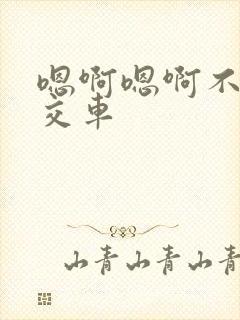 嗯啊嗯啊不
交车
山青山青山青